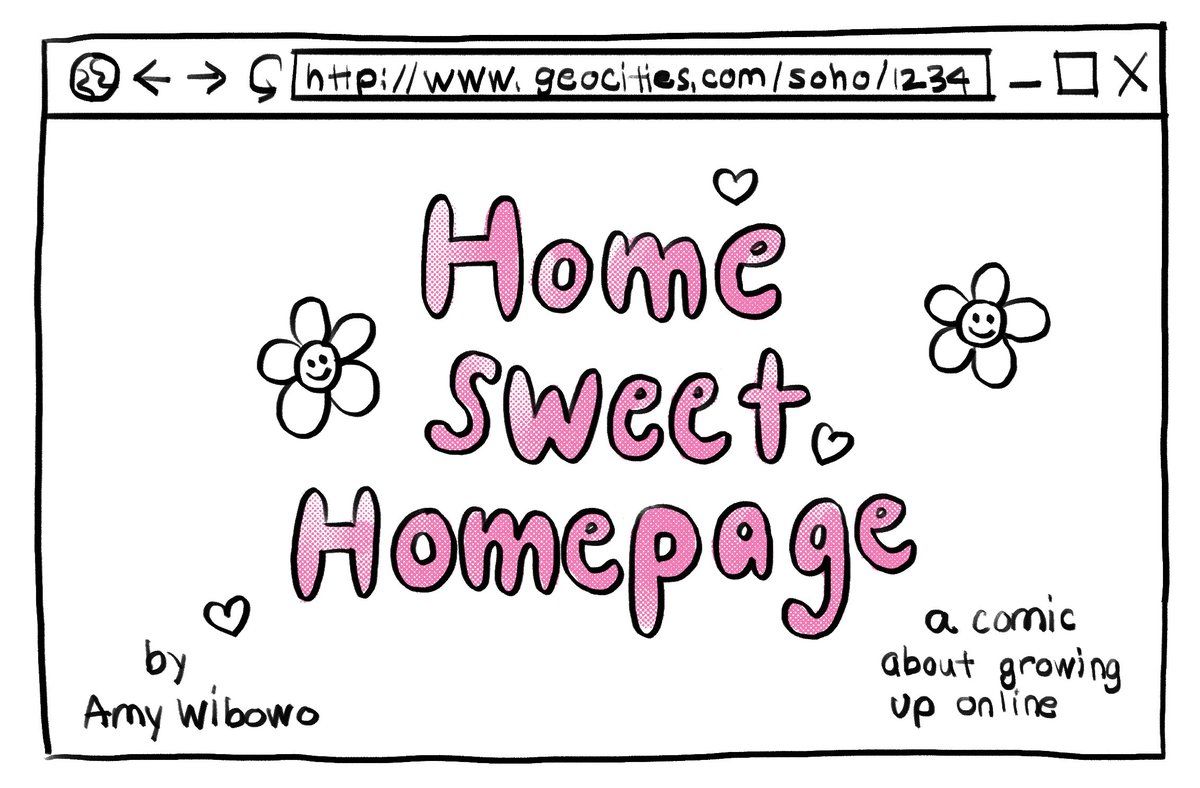 http://www.geocities.com/soho/1234
Home
sweet
Homepage
by
Amy Wibowo
a comic
about growing
up online